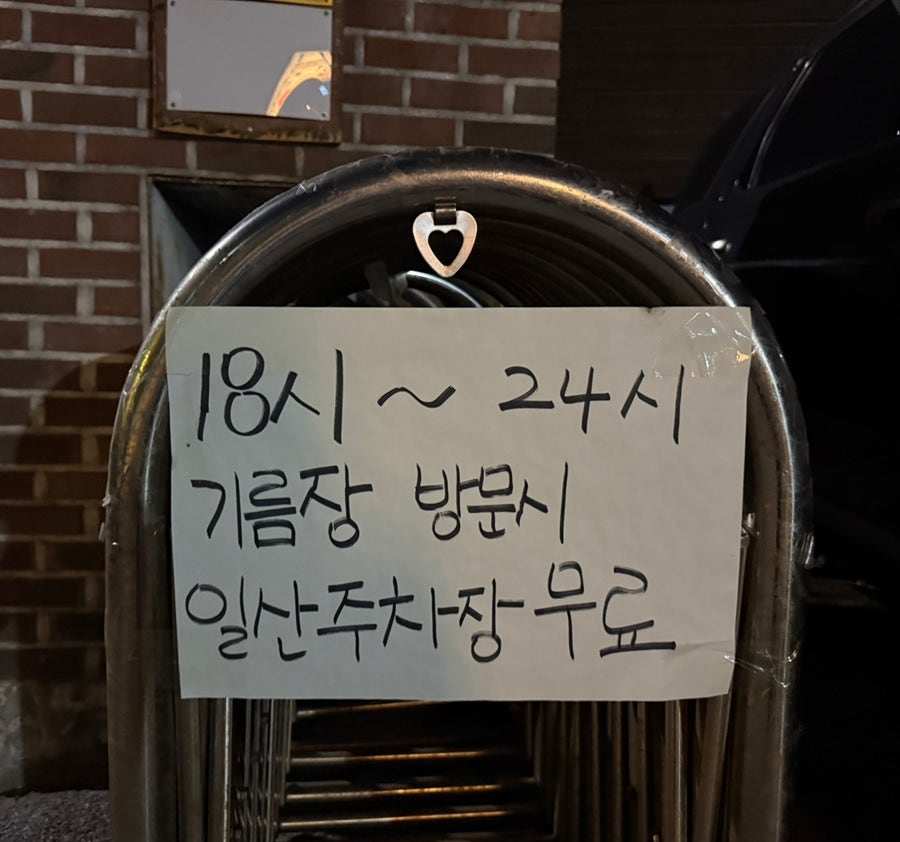 18시 ~ 24시
기름장 방문시
일산주차장 무료